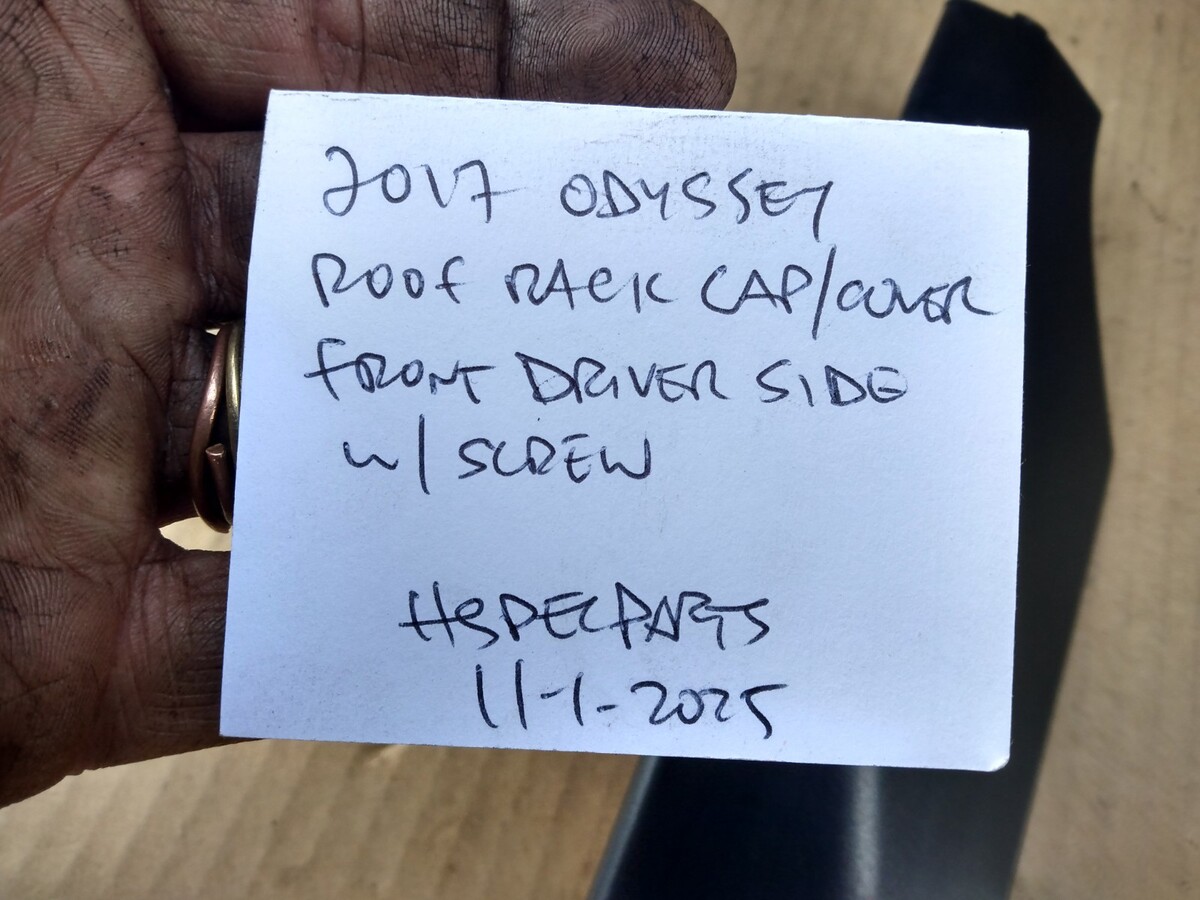 2017 ODYSSEY
ROOF RACK CAP/COVER
FRONT DRIVER SIDE
W/ SCREW
HSPECPARTS
11-1-2025